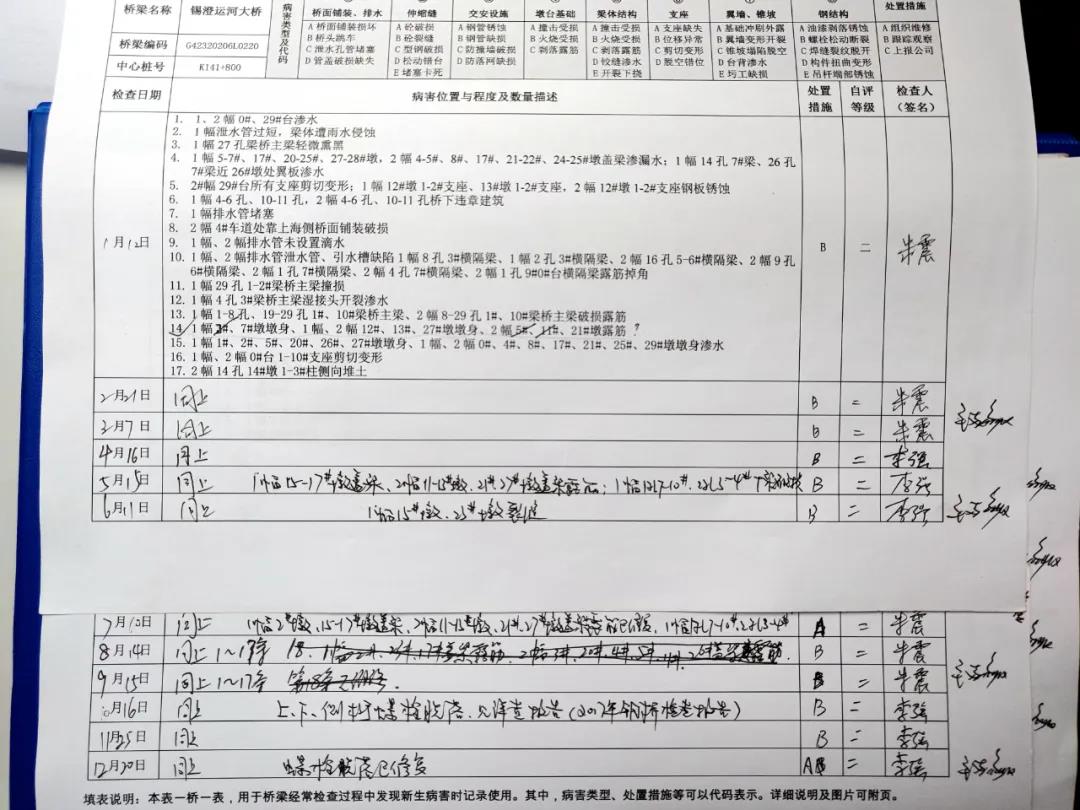 桥梁名称 锡澄运河大桥 病害类型及代码 桥面铺装、排水 伸缩缝 交安设施 墩台基础 梁体结构 支座 翼墙、锥坡 钢结构 处置措施
A 桥面铺装损坏 A 砼破损 A 钢管锈蚀 A 撞击受损 A 撞击受损 A 支座缺失 A 基础冲刷外露 A 油漆剥落锈蚀 A 组织维修
桥梁编码 G42320206L0220 B 桥头跳车 B 砼裂缝 B 钢管缺损 B 火烧受损 B 火烧受损 B 位移异常 B 翼墙变形开裂 B 螺栓松动断裂 B 跟踪观察
C 泄水孔管堵塞 C 型钢破损 C 防撞墙破损 C 剥落露筋 C 剥落露筋 C 剪切变形 C 锥坡塌陷脱空 C 焊缝裂纹脱开 C 上报公司
中心桩号 K141+800 D 管盖破损缺失 D 松动错台 D 防落网缺损 D 铰缝渗水 D 脱空错位 D 台背渗水 D 构件扭曲变形
E 堵塞卡死 E 开裂下挠 E 圬工缺损 E 吊杆端部锈蚀
检查日期 病害位置与程度及数量描述 处置措施 自评等级 检查人（签名）
1. 1、2 幅 0#、29#台渗水
2. 1 幅泄水管过短，梁体遭雨水侵蚀
3. 1 幅 27 孔梁桥主梁轻微熏黑
4. 1 幅 5-7#、17#、20-25#、27-28#墩，2 幅 4-5#、8#、17#、21-22#、24-25#墩盖梁渗漏水；1 幅 14 孔 7#梁、26 孔
7#梁近 26#墩处翼板渗水
5. 2#幅 29#台所有支座剪切变形；1 幅 12#墩 1-2#支座、13#墩 1-2#支座，2 幅 12#墩 1-2#支座钢板锈蚀
6. 1 幅 4-6 孔、10-11 孔，2 幅 4-6 孔、10-11 孔桥下违章建筑
7. 1 幅排水管堵塞
8. 2 幅 4#车道处靠上海侧桥面铺装破损
1月12日 9. 1 幅、2 幅排水管未设置滴水 B 二 朱震
10. 1 幅、2 幅排水管泄水管、引水槽缺陷 1 幅 8 孔 3#横隔梁、1 幅 2 孔 3#横隔梁、2 幅 16 孔 5-6#横隔梁、2 幅 9 孔
6#横隔梁、2 幅 1 孔 7#横隔梁、2 幅 4 孔 7#横隔梁、2 幅 1 孔 9#0#台横隔梁露筋掉角
11. 1 幅 29 孔 1-2#梁桥主梁撞损
12. 1 幅 4 孔 3#梁桥主梁湿接头开裂渗水
13. 1 幅 1-8 孔、19-29 孔 1#、10#梁桥主梁、2 幅 8-29 孔 1#、10#梁桥主梁破损露筋
14. 1 幅 3#、7#墩墩身、1 幅、2 幅 12#、13#、27#墩墩身、2 幅 5#、11#、21#墩露筋 ?
15. 1 幅 1#、2#、5#、20#、26#、27#墩墩身、1 幅、2 幅 0#、4#、8#、17#、21#、25#、29#墩墩身渗水
16. 1 幅、2 幅 0#台 1-10#支座剪切变形
17. 2 幅 14 孔 14#墩 1-3#柱侧向堆土
2月21日 同上 B 二 朱震
2月7日 同上 B 二 朱震
4月16日 同上 B 二 李强
5月15日 同上 1幅15-17#墩盖梁、2幅11-12#墩、21#、27#墩盖梁露筋； B 二 李强
6月11日 同上 1幅15#墩、25#墩裂缝 B 二 李强
7月10日 同上 1幅2#墩、15-17#墩盖梁、2幅11-12#墩、21#、27#墩盖梁 A 二 朱震
8月14日 同上 1~17条 B 二 朱震
9月15日 同上 1~17条 B 二 朱震
10月16日 同上 B 二 李强
11月25日 同上 B 二 李强
12月20日 同上 螺栓脱落已修复 二 李强
填表说明：本表一桥一表，用于桥梁经常检查过程中发现新生病害时记录使用。其中，病害类型、处置措施等可以代码表示。详细说明及图片可附页。